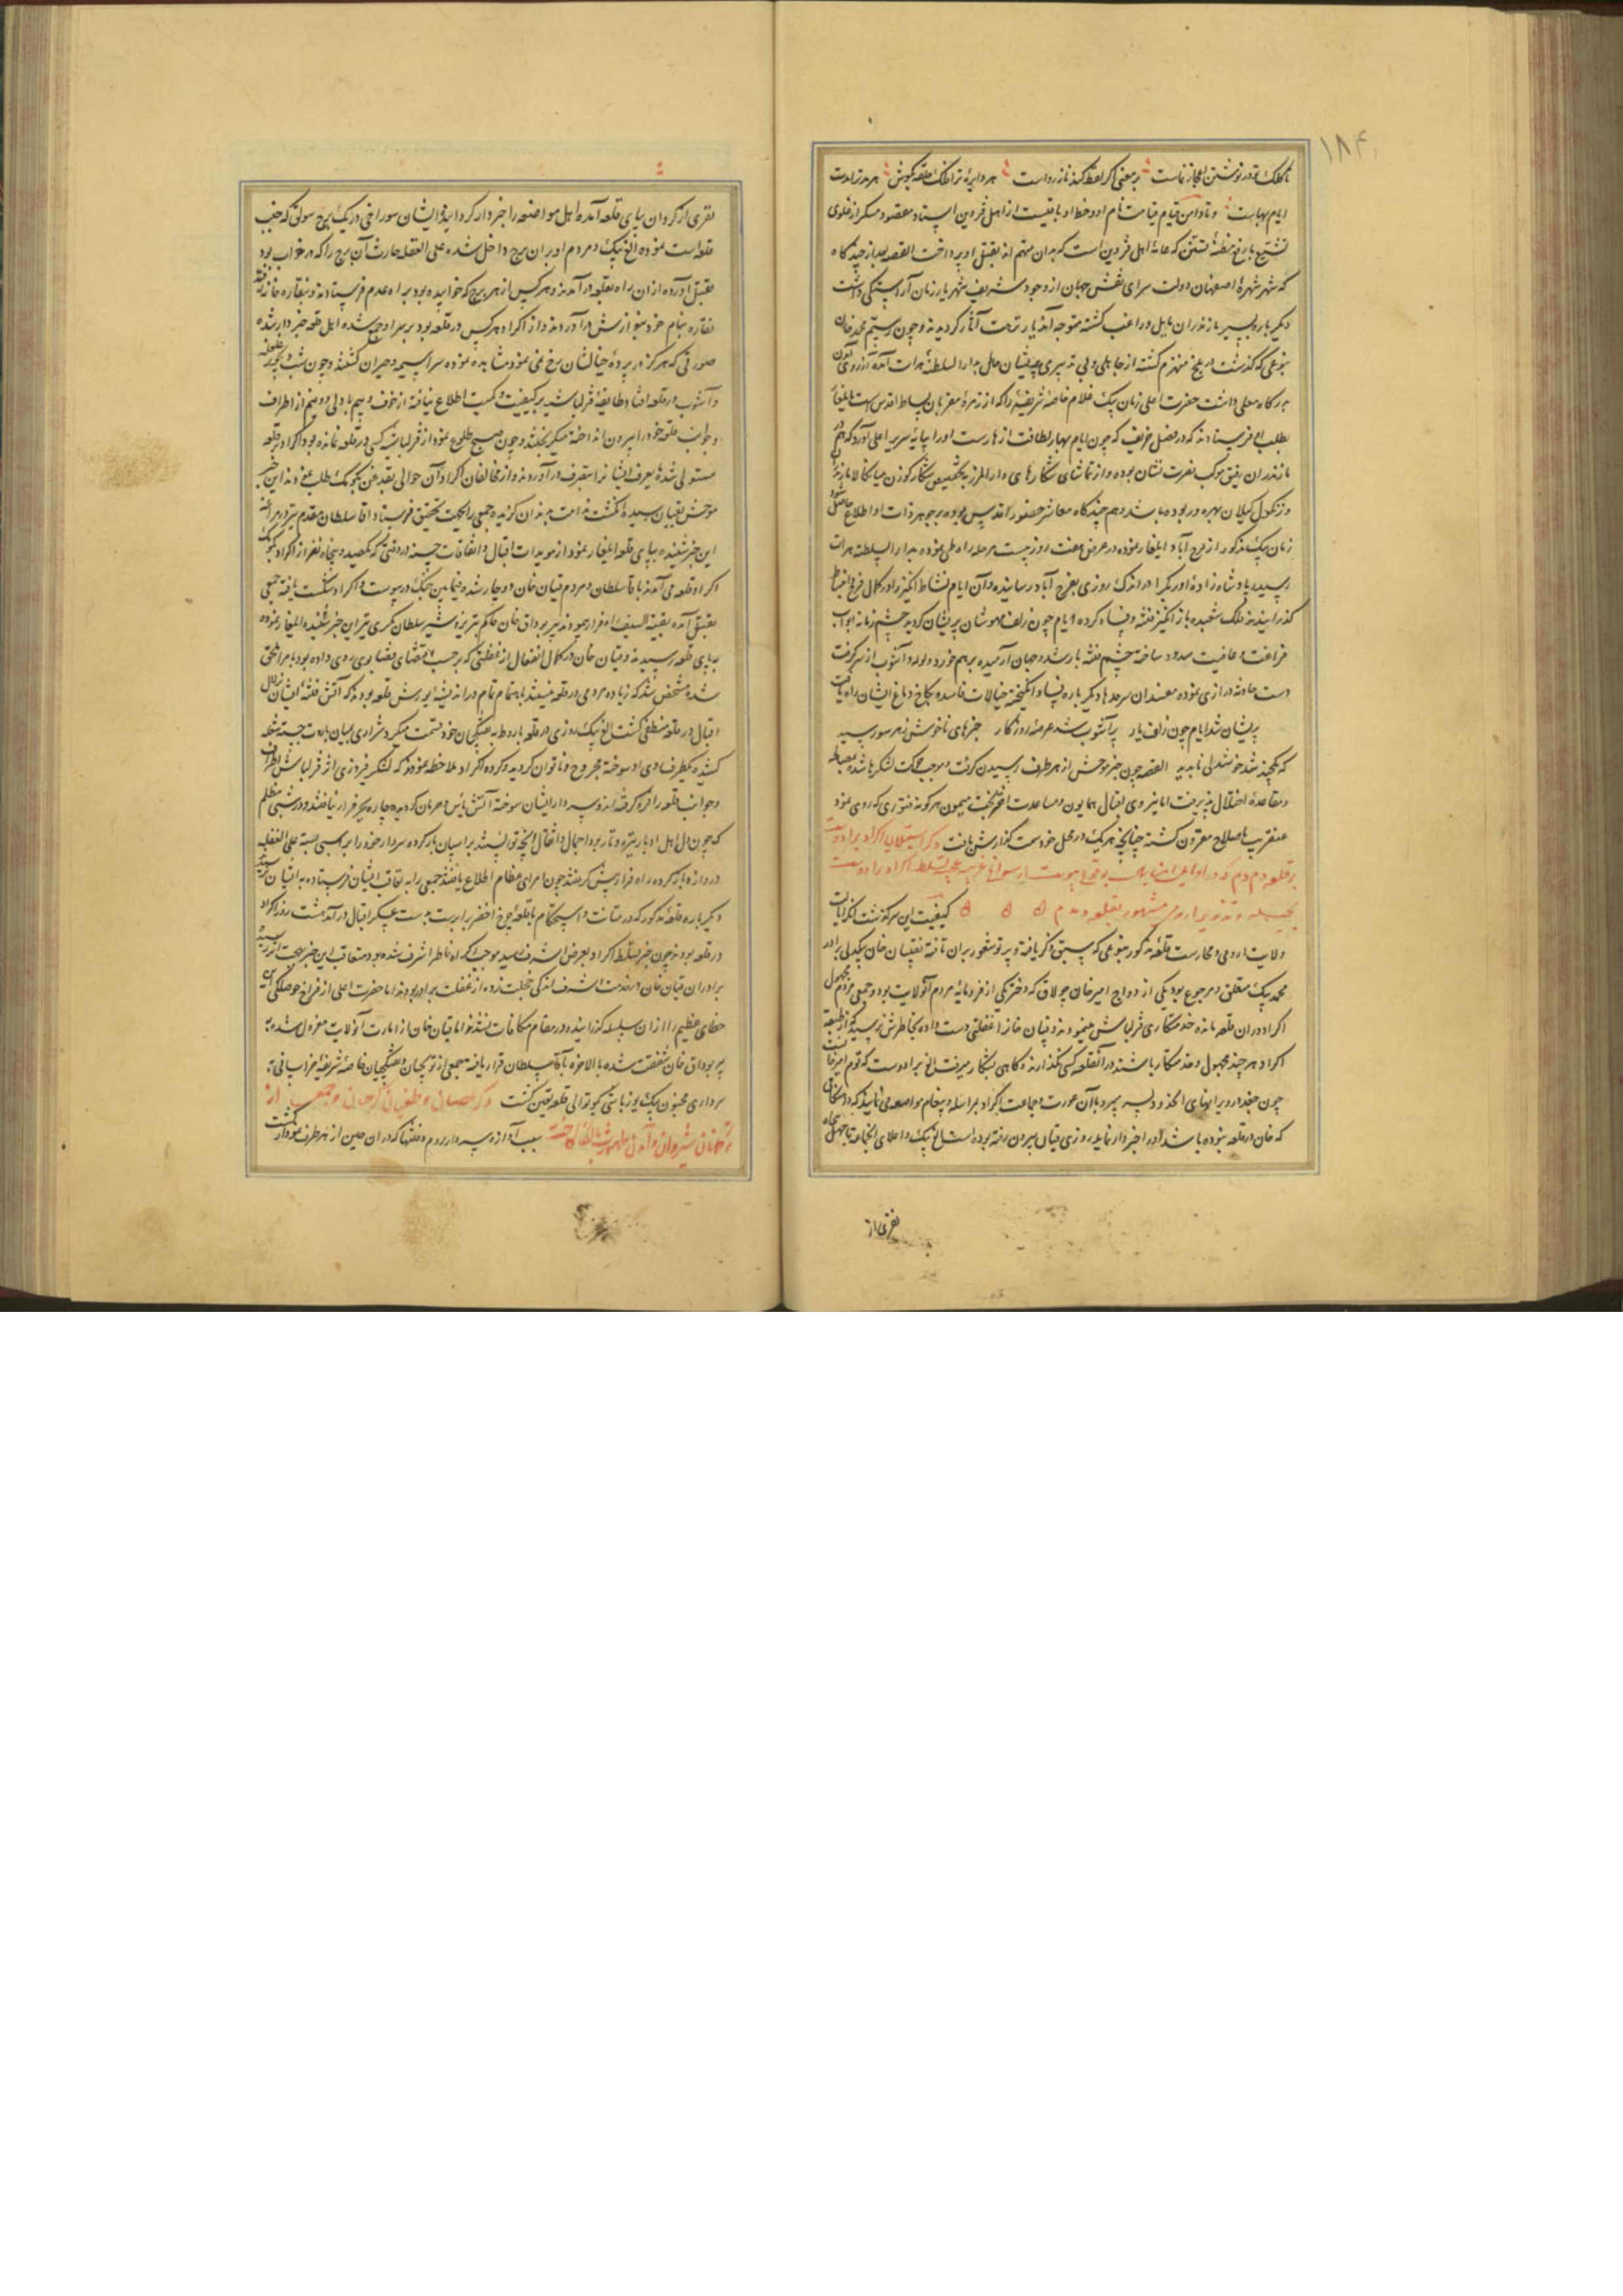 ۱۸۴
تا کلک تو در نوشتن اعجاز نماست بر معنی اگر لفظ کند ناز رواست هر دایرهٔ ترا فلک حلقه بگوش هر مد ترا مدت
ایام بهاست و تا دامن قیام قیامت نام او و خط او باقیست از اهل قزوین استاد مقصود مسگر از غلوی
تشیع با رفع مظنهٔ تسنن که عامهٔ اهل قزوین است که بدان متهم اند بقتل او پرداخت القصه بعد از چندگاه
که شهر شهرهٔ اصفهان دولت سرای نقش جهان از وجود شریف شهریار زمان آراستگی داشت
دیگر باره بسیر مازندران مایل و راغب گشته متوجه آن دیار نزهت آثار گردیدند و چون رستم محمد خان
بنوعی که گذشت در بلخ منهزم گشته از جاهلی و بی تدبیری پریشان حال بدار السلطنهٔ هرات آمده آرزوی آمدن
درگاه معلی داشت حضرت اعلی زمان بیک غلام خاصهٔ شریفه را که از زمرهٔ مقربان بساط اقدس است بایلغار
بطلب او فرستادند که در فصل خریف که چون ایام بهار لطافت از هارست او را بپایهٔ سریر اعلی آورد که هم در
مازندران رفیق موکب نصرت نشان بوده و از تماشای شکارهای دار المرز بتخصیص شکار گوزن میانکاله مازندران
و زنکول گیلان بهره ور بوده باشد و هم چندگاه معاشر حضور اقدس بوده بر جوهر ذات او اطلاع حاصل شود
زمان بیک مذکور از فرح آباد ایلغار نموده در عرض هفت روز بیست مرحله راه طی نموده بدار السلطنه هرات
رسید پادشاه زادهٔ اوزبکیه را در اندک روزی بفرح آباد رسانیده و آن ایام نشاط انگیز را در کمال فرح و انبساط
گذرانیدند فلک شعبده باز انگیز فتنه و فساد کرده ایام چون زلف مهوشان پریشان گردید چشم زمانه ابواب
فراغت و عافیت مسدود ساخته چشم فتنه باز شد و جهان آرمیده برهم خورد و لوله و آشوب از سر گرفت
دست حادثه درازی نموده مفسدان سرحدها دیگر باره فساد انگیخته خیالات فاسده بکاخ دماغ ایشان راه یافت
پریشان شد ایام چون زلف یار پر آشوب شد عرصهٔ روزگار خبرهای ناخوش ز هر سو رسید
القصه چون خبر موحش از هر طرف رسیدن گرفت و موجب حرکت لشکرها شده ضابطه
و قاعده اختلال پذیرفت اما بنیروی اقبال همایون و مساعدت اختر بخت میمون هر گونه فتوری که روی نمود
عنقریب باصلاح مقرون گشت چنانچه هر یک در محل خود سمت گذارش یافت ذکر استیلای اکراد برادوست
بر قلعهٔ دم دم که در اوایل این سال بوقوع پیوست از سوانح غریبه تسلط اکراد برادوست
بحیله و تزویر ارومی مشهور بقلعه دمدم کیفیت این سرگذشت آنکه ایالت
ولایت ارومی و محارست قلعهٔ مذکور بنوعی که سبق ذکر یافته و پرتو شعور بر آن تافته بقپان خان بیکدلی برادر
محمد بیک متعلق و مرجوع بود یکی از ازواج امیر خان چولاق که دختر یکی از فرومایهٔ مردم آن ولایت بود و جمعی مردم مجهول
اکراد در آن قلعه مانده خدمتکاری قزلباش مینمودند و قپان خان را غفلتی دست داده بخاطرش نرسید که از طبقهٔ
اکراد هر چند مجهول و خدمتکار باشند در آن قلعه کسی نگذارند و گاهی بشکار میرفت الغ برادوست که قوم امیر خان است
چون خبردار بر ابهای
که خان در قلعه نبوده باشد او را خبردار نماید روزی قپان بیرون رفته بوده است الغ بیک
نفری از
نفری از کردان بپای قلعه آمده اهل مواضعه را خبردار گردانید و ایشان سوراخی در یک برج سولق که جنب
قلعه است نموده الغ بیک و مردم او بر آن برج داخل شده علی الغفله حارث آن برج را که در خواب بود
بقتل آورده از آن راه بقلعه در آمدند و هر کس از هر برج که خوابیده بود براه عدم فرستادند و بنقاره خانه رفته
نقاره بنام خود بنوازش در آوردند و از اکراد هر کس در قلعه بود بر سر او جمع شده اهل قلعه خبردار شده
صورتی که هرگز در پردهٔ خیالشان رخ نمی نمود مشاهده نموده سراسیمه و حیران گشتند و چون شب بود و غلغله
و آشوب در قلعه افتاد طایفهٔ قزلباشیه بر کیفیت و کمیت اطلاع نیافته از خوف و بیم با دلی دو نیم از اطراف
و جوانب قلعه خود را بیرون انداخته میگریختند و چون صبح طلوع نمود از قزلباش کسی در قلعه نمانده بود اکراد بر قلعه
مستولی شده یعرف ایشانرا بتصرف در آوردند و از مخالفان اکراد آن حوالی بقدغن کومک طلب نمودند این خبر
موحش بقپان رسید انگشت ندامت بدندان گزیده جمعی را بجهت تحقیق فرستاد آقا سلطان مقدم نیز در مراغه
این خبر شنیده بپای قلعه ایلغار نمود از مویدات اقبال و اتفاقات حسنه در وقتی که یکصد و پنجاه نفر از اکراد بکومک
اکراد قلعه می آمدند با آقا سلطان و مردم قپان خان دوچار شده فیما بین جنگ در پیوست و اکراد شکست یافته جمعی
بقتل آمده بقیة السیف راه فرار پیمودند پیر بوداق خان حاکم تبریز و شیر سلطان مکری نیز این خبر شنیده ایلغار نموده
بپای قلعه رسیدند و قپان خان در کمال انفعال از غفلتی که بر حسب مقتضای قضا بوی روی داده بود بامرا ملحق
شده مشخص شد که زیاده مردمی در قلعه نیستند باهتمام تمام در اندیشهٔ یورش قلعه بودند که آتش فتنهٔ ایشان بزلال
اقبال در قلعه منطفی گشت الغ بیک روزی در قلعه باروط بتفنگچیان خود قسمت میکرد شراری بمیان باروت جسته شعله
کشیده یکطرف او سوخته مجروح و ناتوان گردید و گروه اکراد ملاحظه نمودند که لشکر فیروزی اثر قزلباش اطراف
و جوانب قلعه را فرو گرفته اند و سردار ایشان سوخته آتش یأس و حرمان گردیده چاره بجز فرار نیافتند و در شبی مظلم
که چون دل اهل ادبار تیره و تار بود احمال و اثقال آنچه توانستند بر اسبان بار کرده سردار خود را بر اسبی بسته علی الغفله
دروازه باز کرده راه فرار پیش گرفتند چون امرای عظام اطلاع یافتند جمعی را بتعاقب ایشان فرستاده
دیگر باره قلعهٔ مذکور که در متانت و استحکام با قلعهٔ چرخ اخضر برابرست بدست عسکر اقبال در آمد هشت روز اکراد
در قلعه بودند چون خبر تسلط اکراد بعرض اشرف رسید موجب اکراه خاطر اشرف شده بود متعاقب این خبر بهجت اثر رسید
برادران قپان خان در خدمت اشرف اندکی خجلت زده از غفلت برادر بودند اما حضرت اعلی از فراخ حوصلگی این
خطای عظیم را از آن سلسله گذرانیده در مقام مکافات نشدند اما قپان خان از امارت آن ولایت معزول شده به
پیر بوداق خان شفقت شده بالاخره بآقا سلطان قرار یافته جمعی از توپچیان و تفنگچیان خاصهٔ شریفهٔ خراسانی به
سرداری مجنون بیک یوزباشی بکوتوالی قلعه تعین گشت ذکر عصیان و طغیان گرجیان و جمعی از
سبب آوازه سپهدار روم و فتنها که در آن حین از هر طرف نمودار گشت